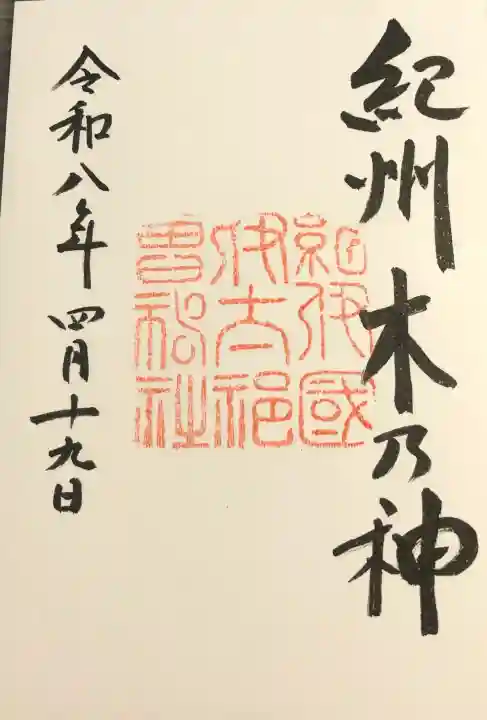 紀州木乃神
紀伊國
伏太祁
曽神社
令和八年四月十九日